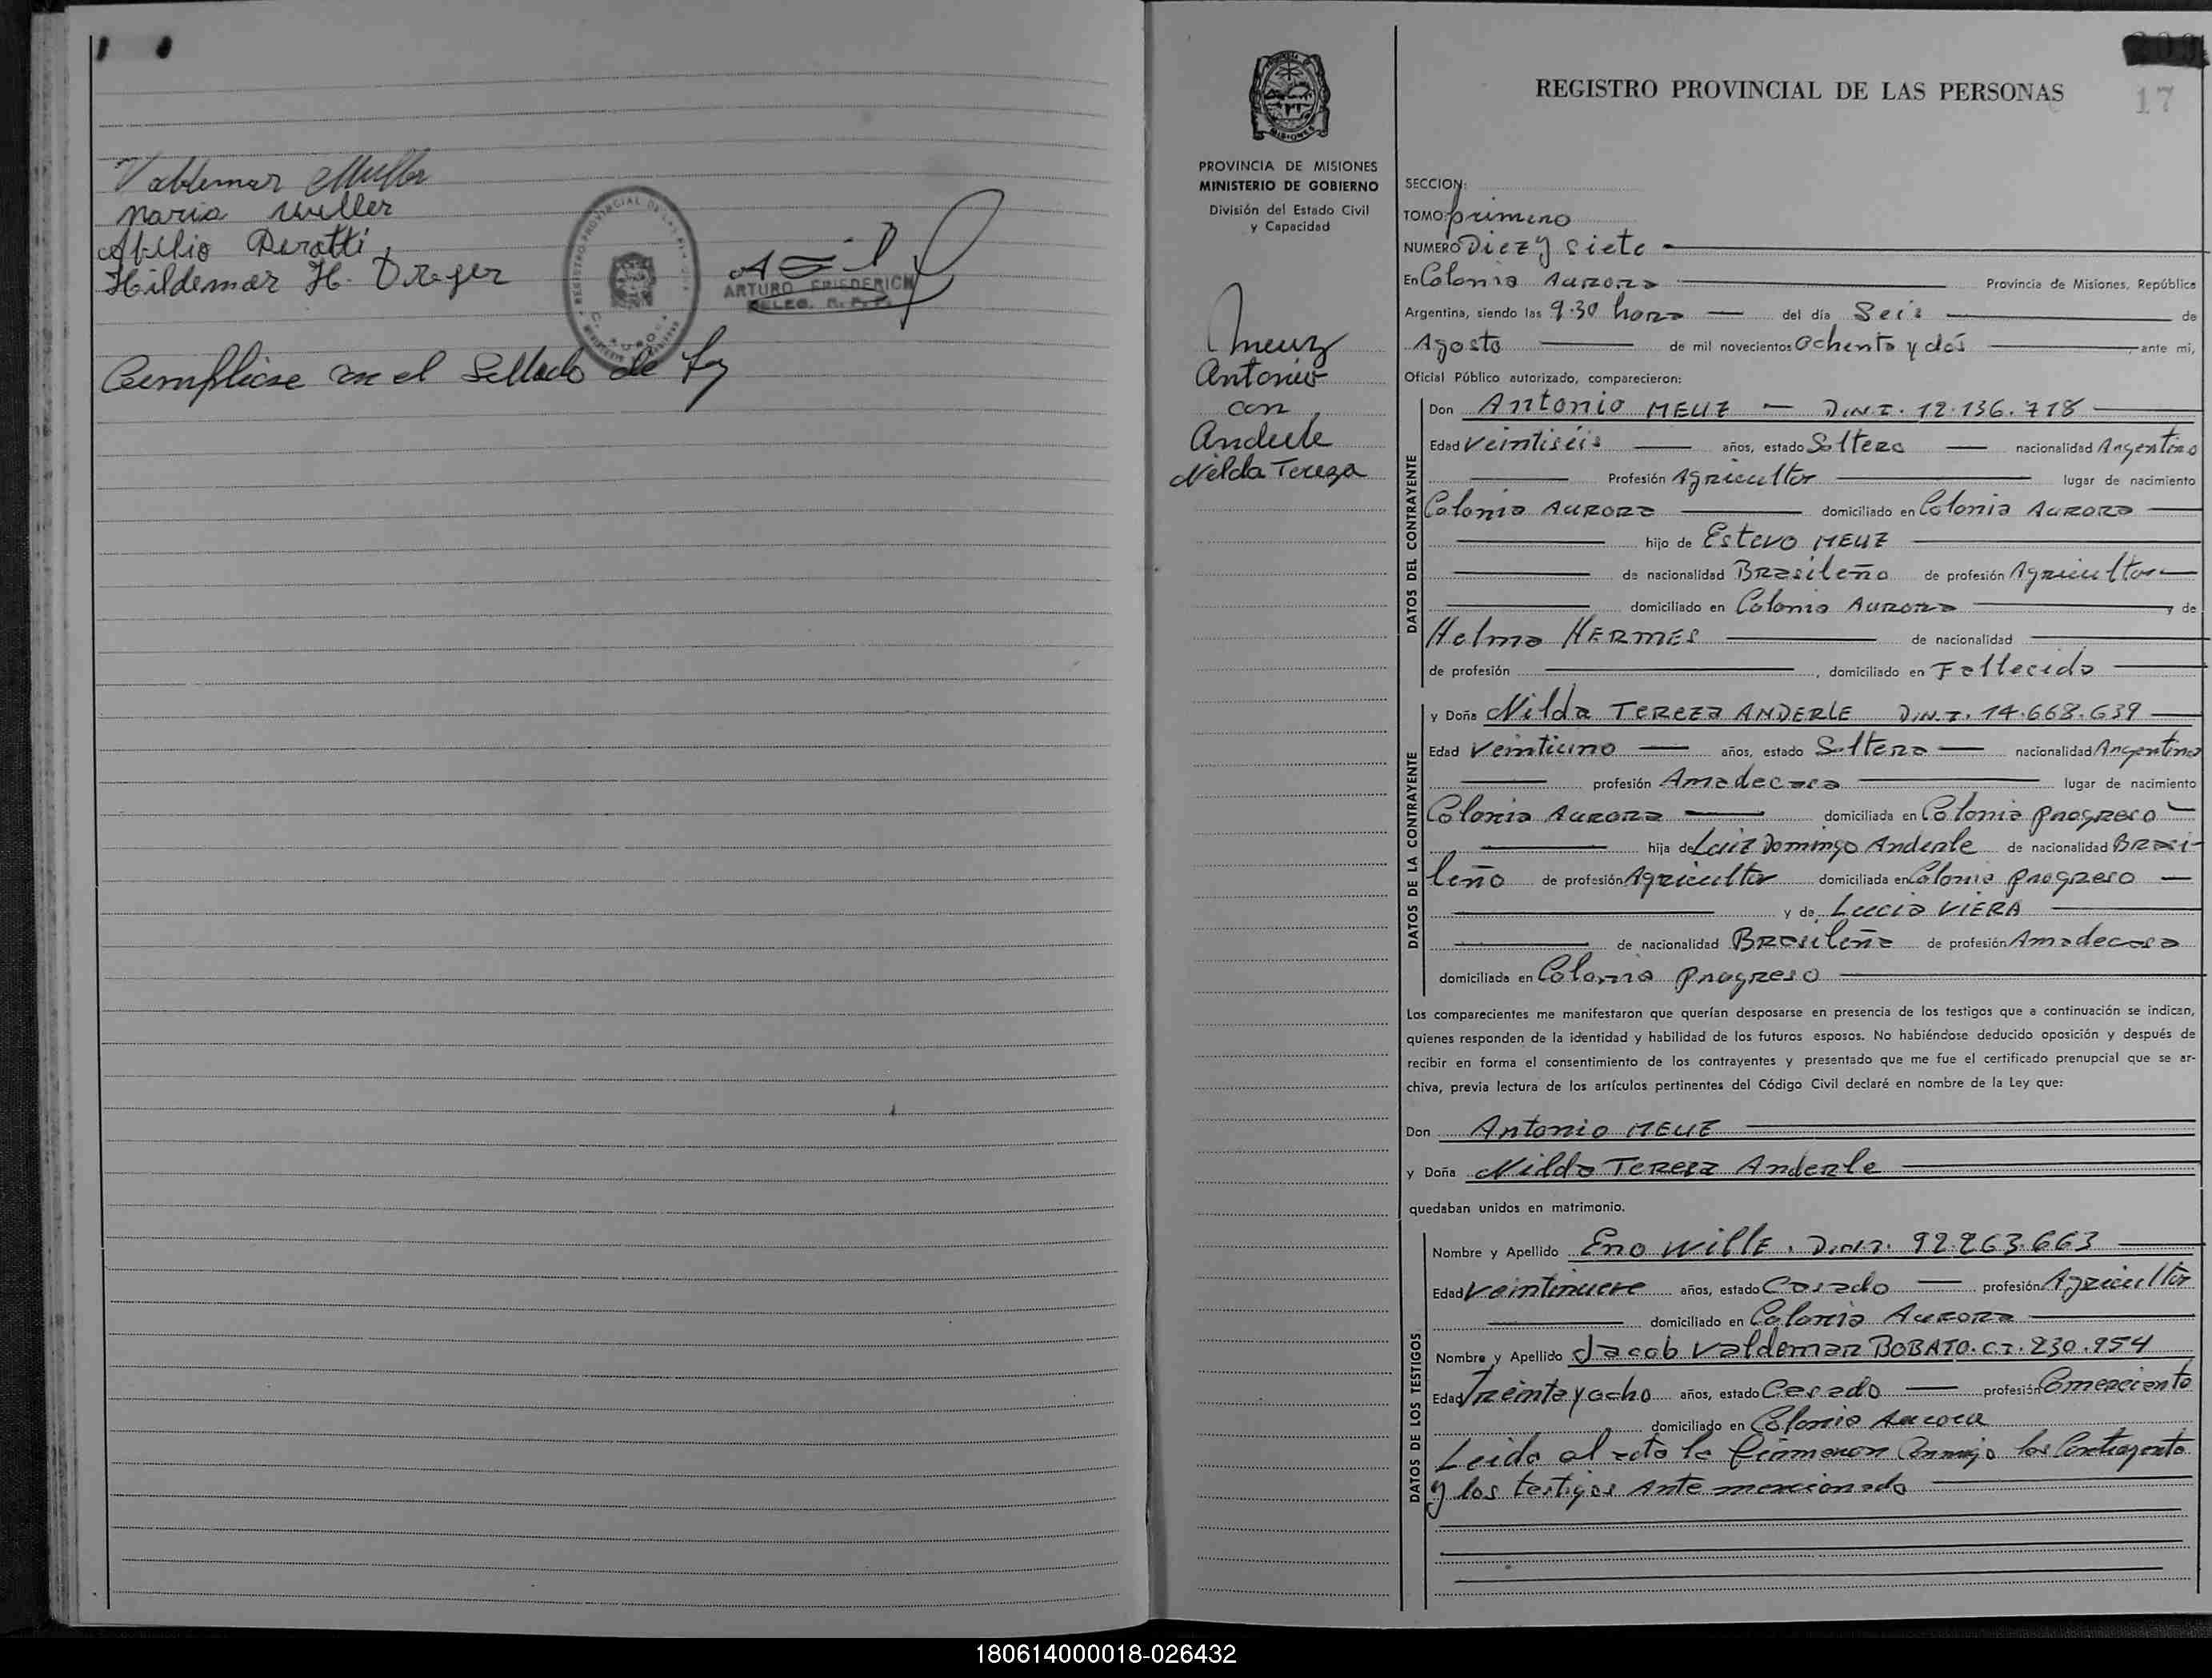 Valdemar Muller
Maria Muller
Abilio Peratti
Hildemar H. Dreger
ARTURO FRIEDERICH
DELEG. R. P. P.
Cumpliose con el Sellado de Ley
PROVINCIA DE MISIONES
MINISTERIO DE GOBIERNO
División del Estado Civil
y Capacidad
Meuz
Antonio
con
Anderle
Nilda Tereza
REGISTRO PROVINCIAL DE LAS PERSONAS
17
SECCION:
TOMO: primero
NUMERO Diez y siete
En Colonia Aurora Provincia de Misiones, República
Argentina, siendo las 9.30 hora del día Seis de
Agosto de mil novecientos ochenta y dós, ante mi,
Oficial Público autorizado, comparecieron:
DATOS DEL CONTRAYENTE
Don Antonio MEUZ - D.N.I. 12.136.718
Edad veintiséis años, estado Soltero nacionalidad Argentino
Profesión Agricultor lugar de nacimiento
Colonia Aurora domiciliado en Colonia Aurora
hijo de Estevo MEUZ
de nacionalidad Brasileño de profesión Agricultor
domiciliado en Colonia Aurora, de
Helma HERMES de nacionalidad
de profesión, domiciliado en Fallecida
DATOS DE LA CONTRAYENTE
y Doña Nilda TEREZA ANDERLE D.N.I. 14.668.639
Edad Veintiuno años, estado Soltera nacionalidad Argentina
profesión Amadecasa lugar de nacimiento
Colonia Aurora domiciliada en Colonia Progreso
hija de Luiz Domingo Anderle de nacionalidad Brasi-
leño de profesión Agricultor domiciliada en Colonia Progreso
y de Lucia VIERA
de nacionalidad Brasileña de profesión Amadecasa
domiciliada en Colonia Progreso
Los comparecientes me manifestaron que querían desposarse en presencia de los testigos que a continuación se indican,
quienes responden de la identidad y habilidad de los futuros esposos. No habiéndose deducido oposición y después de
recibir en forma el consentimiento de los contrayentes y presentado que me fue el certificado prenupcial que se ar-
chiva, previa lectura de los artículos pertinentes del Código Civil declaré en nombre de la Ley que:
Don Antonio MEUZ
y Doña Nilda Tereza Anderle
quedaban unidos en matrimonio.
DATOS DE LOS TESTIGOS
Nombre y Apellido Eno WillE. D.N.I. 92.263.663
Edad Veintinueve años, estado Casado profesión Agricultor
domiciliado en Colonia Aurora
Nombre y Apellido Jacob Valdemar BOBATO. C.I. 230.954
Edad Treinta y ocho años, estado Casado profesión Comerciante
domiciliado en Colonia Aurora
Leida el acta la firmaron Conmigo los Contrayente
y los testigos Ante mencionado
180614000018-026432